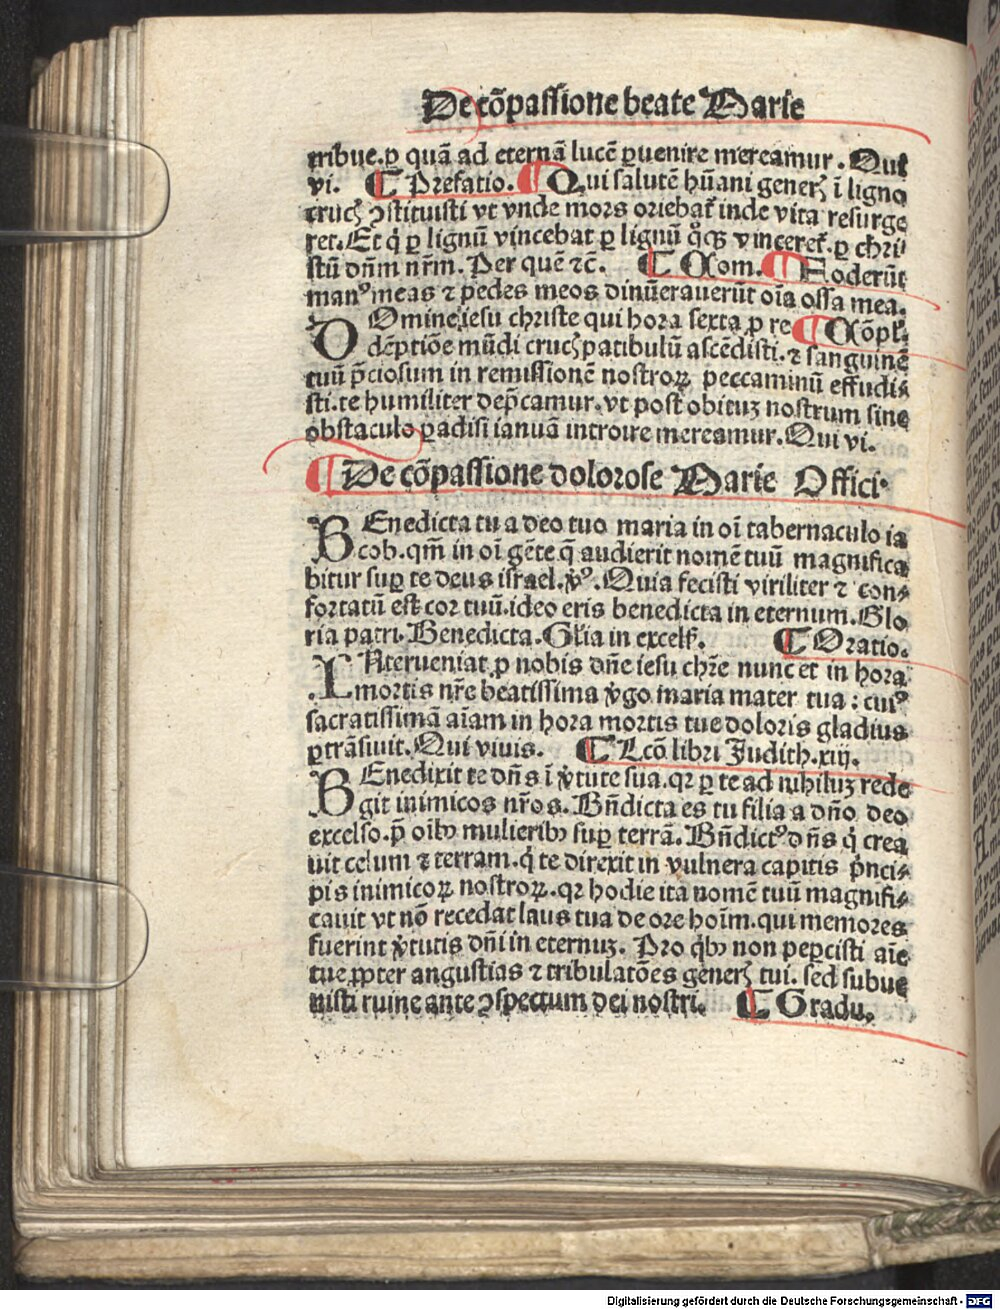 De cõpassione beate Marie
tribue.ꝑ quã ad eternã lucẽ ꝑuenire mereamur. Qui
vi. ¶ Prefatio. ¶ Qui salutẽ hũani generꝭ ĩ ligno
crucꝭ ꝯstituisti vt vnde mors oriebat᷑ inde vita resurge
ret. Et q̇ ꝑ lignũ vincebat ꝑ lignũ q̊qꝫ vinceret᷑. ꝑ chri
stũ dñm nr̃m. Per quẽ ⁊c̃. ¶ Com. ¶ Foderũt
manꝰ meas ⁊ pedes meos dinũerauerũt oĩa ossa mea.
DOmine iesu christe qui hora sexta ꝓ re ¶ Cõpl᷑.
dẽptiõe mũdi crucꝭ patibulũ ascẽdisti. ⁊ sanguinẽ
tuũ p̃ciosum in remissionẽ nostroꝝ peccaminũ effudi⸗
sti. te humiliter dep̃camur. vt post obituꝫ nostrum sine
obstaculo ꝑadisi ianuã introire mereamur. Qui vi.
¶ De cõpassione dolorose Marie Offici⸱
BEnedicta tu a deo tuo maria in oĩ tabernaculo ia
cob. qm̃ in oĩ gẽte q̃ audierit nomẽ tuũ magnifica
bitur suꝑ te deus israel. ℣ꝰ. Quia fecisti viriliter ⁊ con⸗
fortatũ est cor tuũ. ideo eris benedicta in eternum. Glo
ria patri. Benedicta. Gl̃ia in excels᷑. ¶ Oratio.
INterueniat ꝓ nobis dñe iesu chr̃e nunc et in hora
mortis nr̃e beatissima v̾go maria mater tua : cuiꝰ
sacratissimã aĩam in hora mortis tue doloris gladius
ꝑtrãsiuit. Qui viuis. ¶ Lcõ libri Judith. xiij.
BEnedixit te dñs ĩ v̾tute sua. qꝛ ꝑ te ad nihiluꝫ rede
git inimicos nr̃os. Bñdicta es tu filia a dño deo
excelso. p̃ oĩbꝰ mulieribꝰ suꝑ terrã. Bñdictꝰ dñs q̇ crea
uit celum ⁊ terram. q̇ te direxit in vulnera capitis p̾nci⸗
pis inimicoꝝ nostroꝝ. qꝛ hodie ita nomẽ tuũ magnifi⸗
cauit vt nõ recedat laus tua de ore hoĩm. qui memores
fuerint v̾tutis dñi in eternuꝫ. Pro qĩbꝰ non peꝑcisti aĩe
tue ꝓpter angustias ⁊ tribulatões generꝭ tui. sed subue
nisti ruine ante ꝯspectum dei nostri. ¶ Gradu.
Digitalisierung gefördert durch die Deutsche Forschungsgemeinschaft - DFG